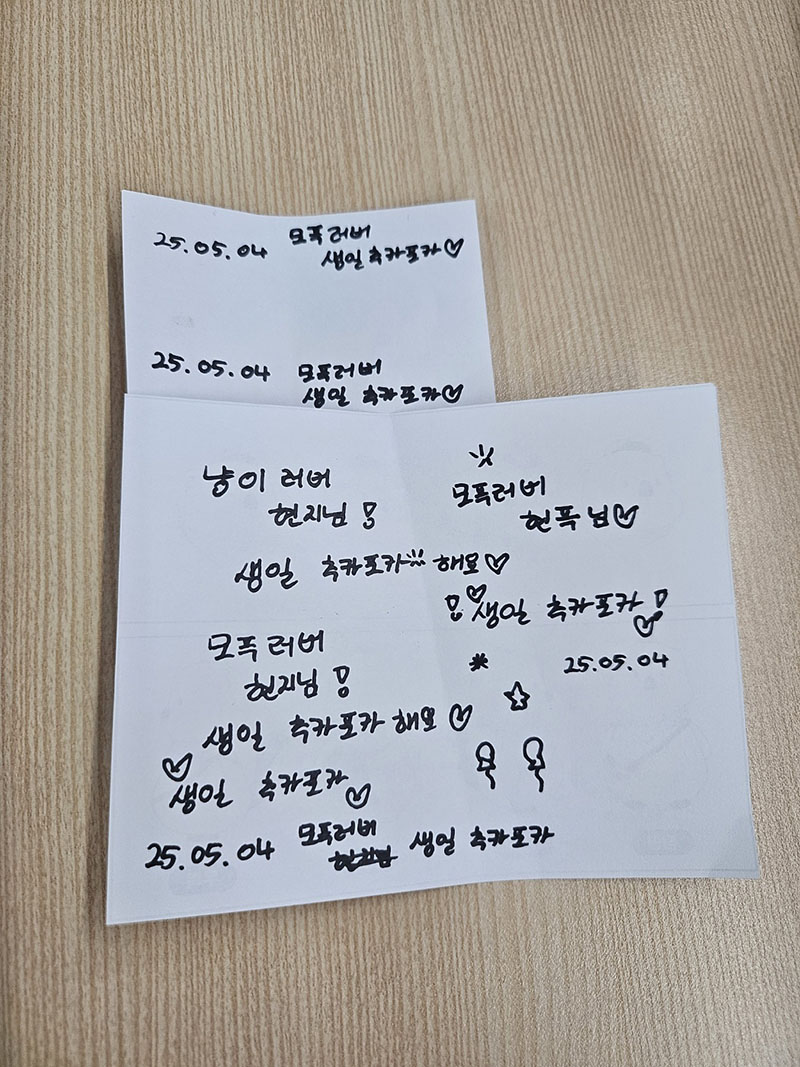 25.05.04 모폭러버
생일 축카포카♡
25.05.04 모폭러버
생일 축카포카♡
냥이 러버
현지님!
생일 축카포카 해요♡
모폭러버
현폭님♡
!♡생일 축카포카!♡
25.05.04
모폭러버
현지님!
생일 축카포카 해요♡
♡생일 축카포카♡
25.05.04 모폭러버
현지님 생일 축카포카